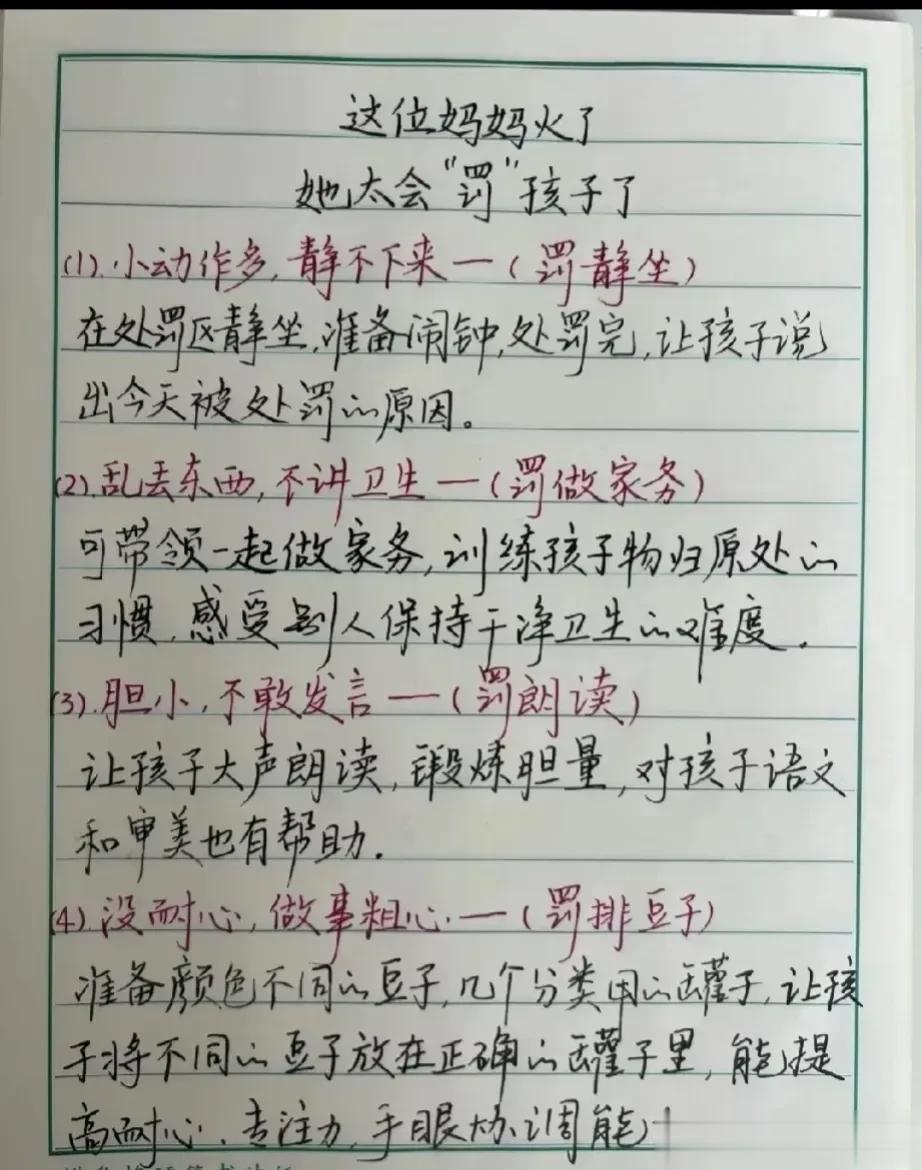 这位妈妈火了
她太会“罚”孩子了
(1).小动作多,静不下来一(罚静坐)
在处罚区静坐,准备闹钟,处罚完,让孩子说
出今天被处罚的原因。
(2).乱丢东西,不讲卫生一(罚做家务)
可带领一起做家务,训练孩子物归原处的
习惯,感受别人保持干净卫生的难度.
(3).胆小,不敢发言一(罚朗读)
让孩子大声朗读,锻炼胆量,对孩子语文
和审美也有帮助.
(4).没耐心,做事粗心.一(罚排豆子)
准备颜色不同的豆子,几个分类用的罐子,让孩
子将不同的豆子放在正确的罐子里,能提
高耐心.专注力,手眼协调能